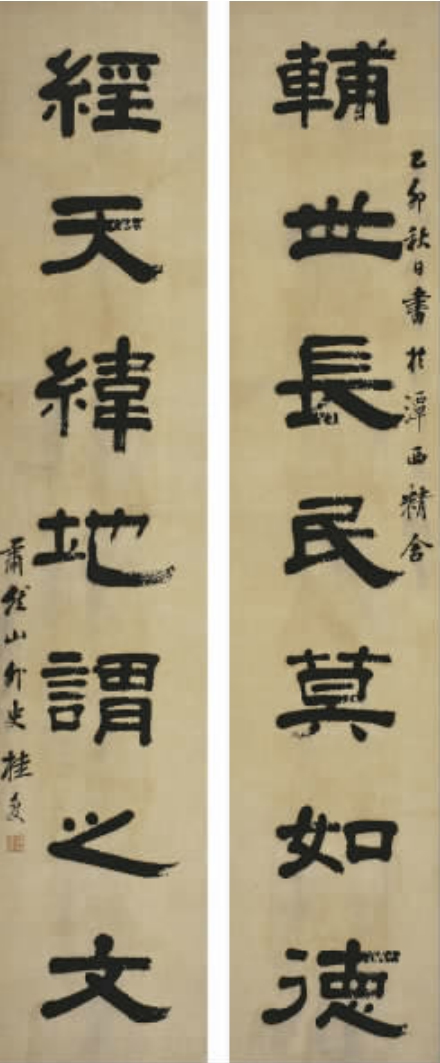 乙卯秋日書於潭西精舍
輔世長民莫如德
經天緯地謂之文
肅然山外史桂复